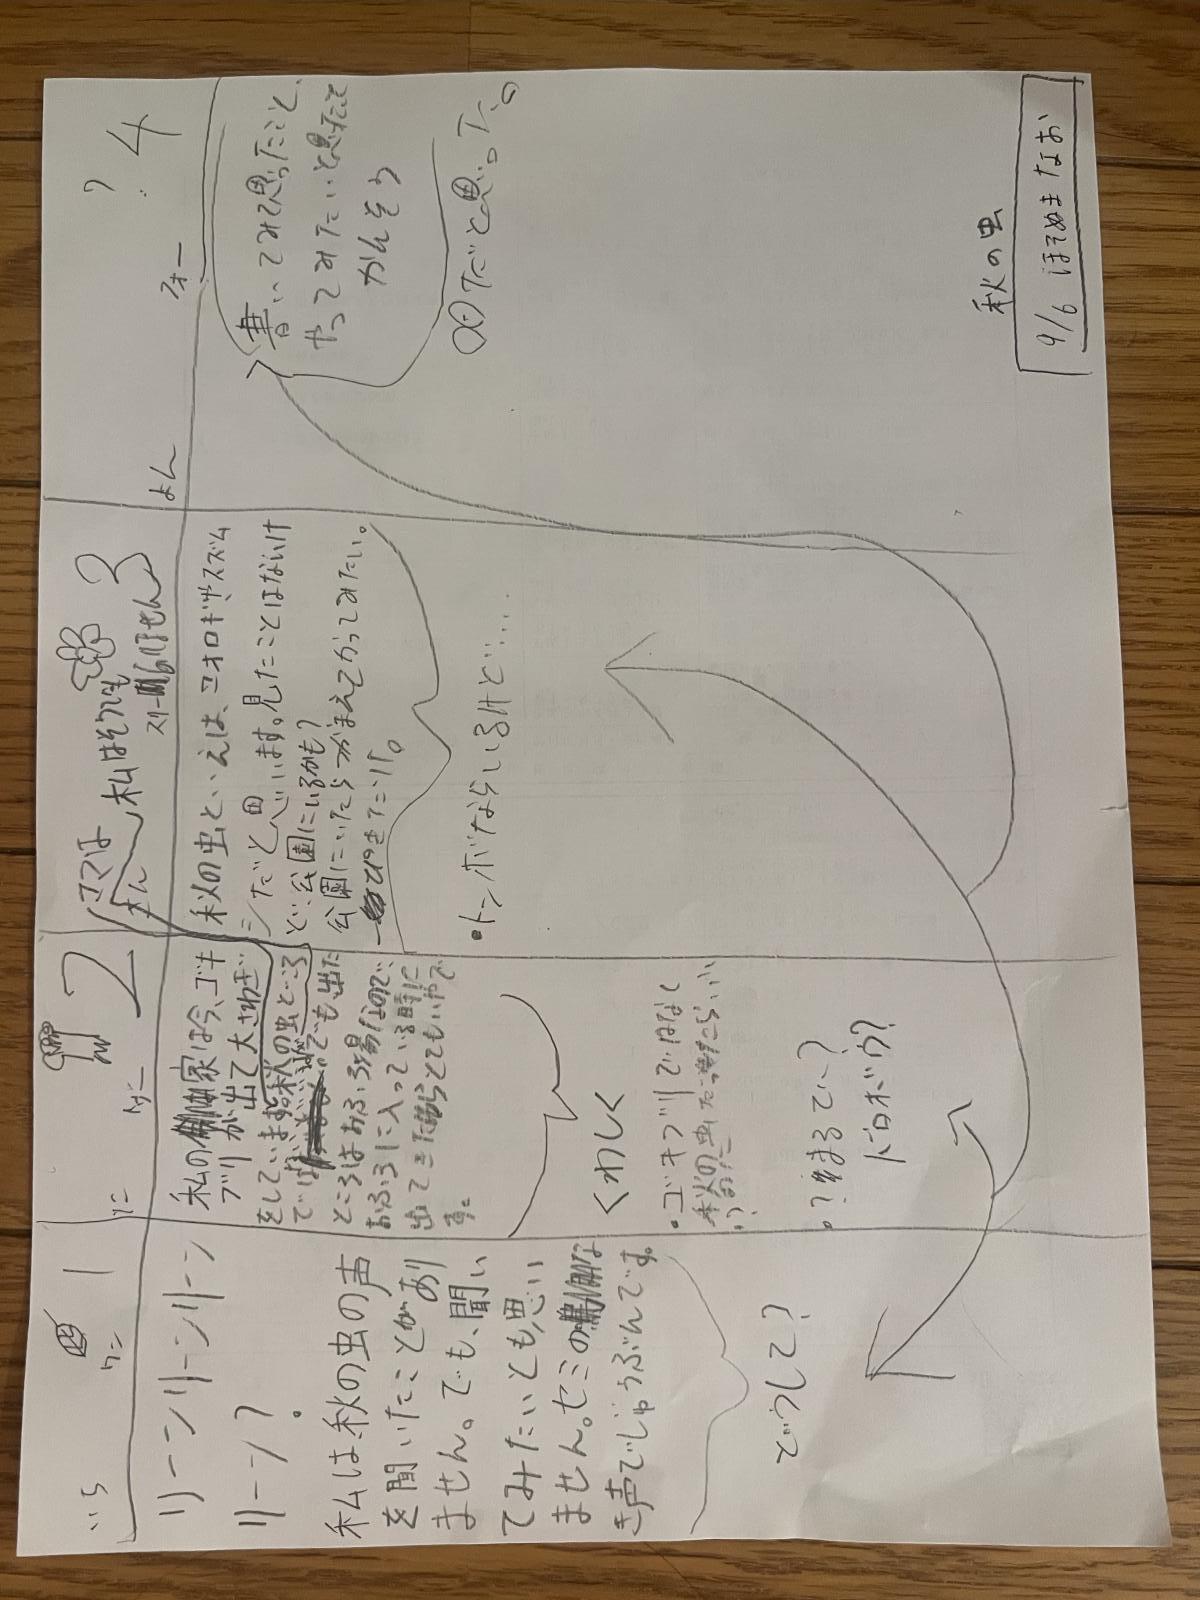 秋の虫
9/6 ほそぬま なお
いち
ワン
1
リーンリーンリーン
リーン?
私は秋の虫の声
を聞いたことがあり
ません。でも、聞い
てみたいとも思い
ません。セミのな
き声でじゅうぶんです。
どうして?
に
ツー
2
私の家は今、ゴキ
ブリが出て大さわぎ
をしています。秋の虫という
でも、出た
ところはおふろ場なので、
おふろに入っている時に
出てきたらとてもいやで
す。
くわしく
・ゴキブリではなく
秋の虫だったらいい
・?まるでい?
ドロボウ?
さん
スリー
3
ママは
私はそうでも
ありません
秋の虫といえば、コオロギやスズム
シだと思います。見たことはないけ
ど、公園にいるかも?
公園にいたらつかまえてかってみたい。
・トンボならいるけど……
よん
フォー
4
?
書いてみて思ったこと、
やってみたいと思ったこと
かんそう
〇〇だと思った。